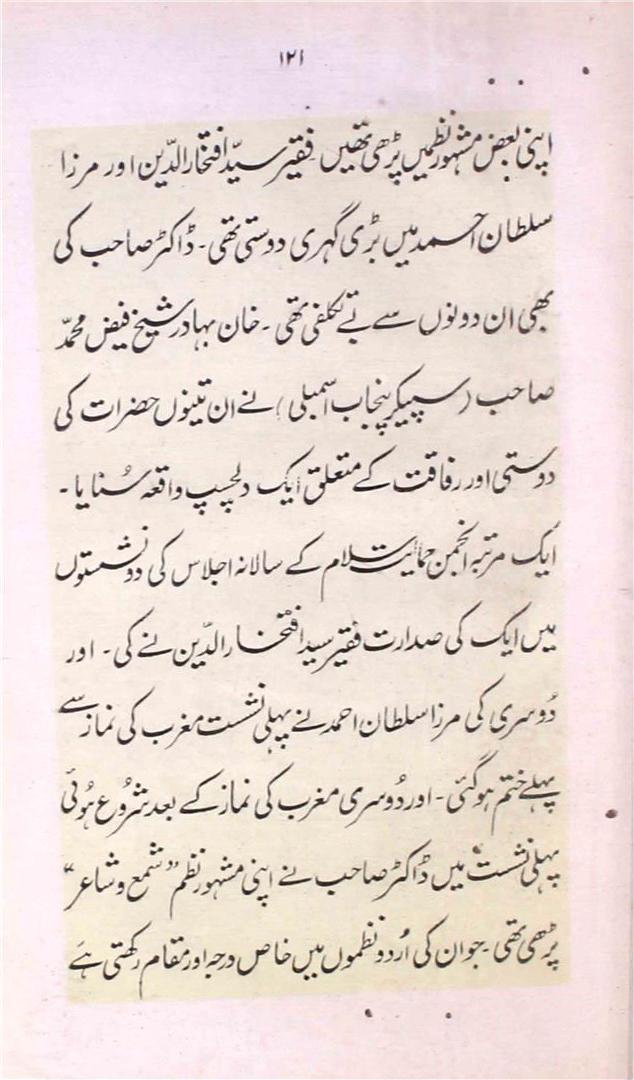 ۱۲۱
اپنی بعض مشہور نظمیں پڑھی تھیں۔ فقیر سیّد افتخار الدّین اور مرزا
سلطان احمد میں بڑی گہری دوستی تھی۔ ڈاکٹر صاحب کی
بھی ان دونوں سے بے تکلفی تھی۔ خان بہادر شیخ فیض محمدّ
صاحب (سپیکر پنجاب اسمبلی) نے ان تینوں حضرات کی
دوستی اور رفاقت کے متعلق ایک دلچسپ واقعہ سُنایا۔
ایک مرتبہ انجمن حمایت اسلام کے سالانہ اجلاس کی دو نشستوں
میں ایک کی صدارت فقیر سید افتخار الدّین نے کی۔ اور
دُوسری کی مرزا سلطان احمد نے پہلی نشست مغرب کی نماز سے
پہلے ختم ہو گئی۔ اور دُوسری مغرب کی نماز کے بعد شروُع ہوُئی
پہلی نشست میں ڈاکٹر صاحب نے اپنی مشہور نظم "شمع و شاعر"
پڑھی تھی۔ جو ان کی اُردو نظموں میں خاص درجہ اور مقام رکھتی ہے